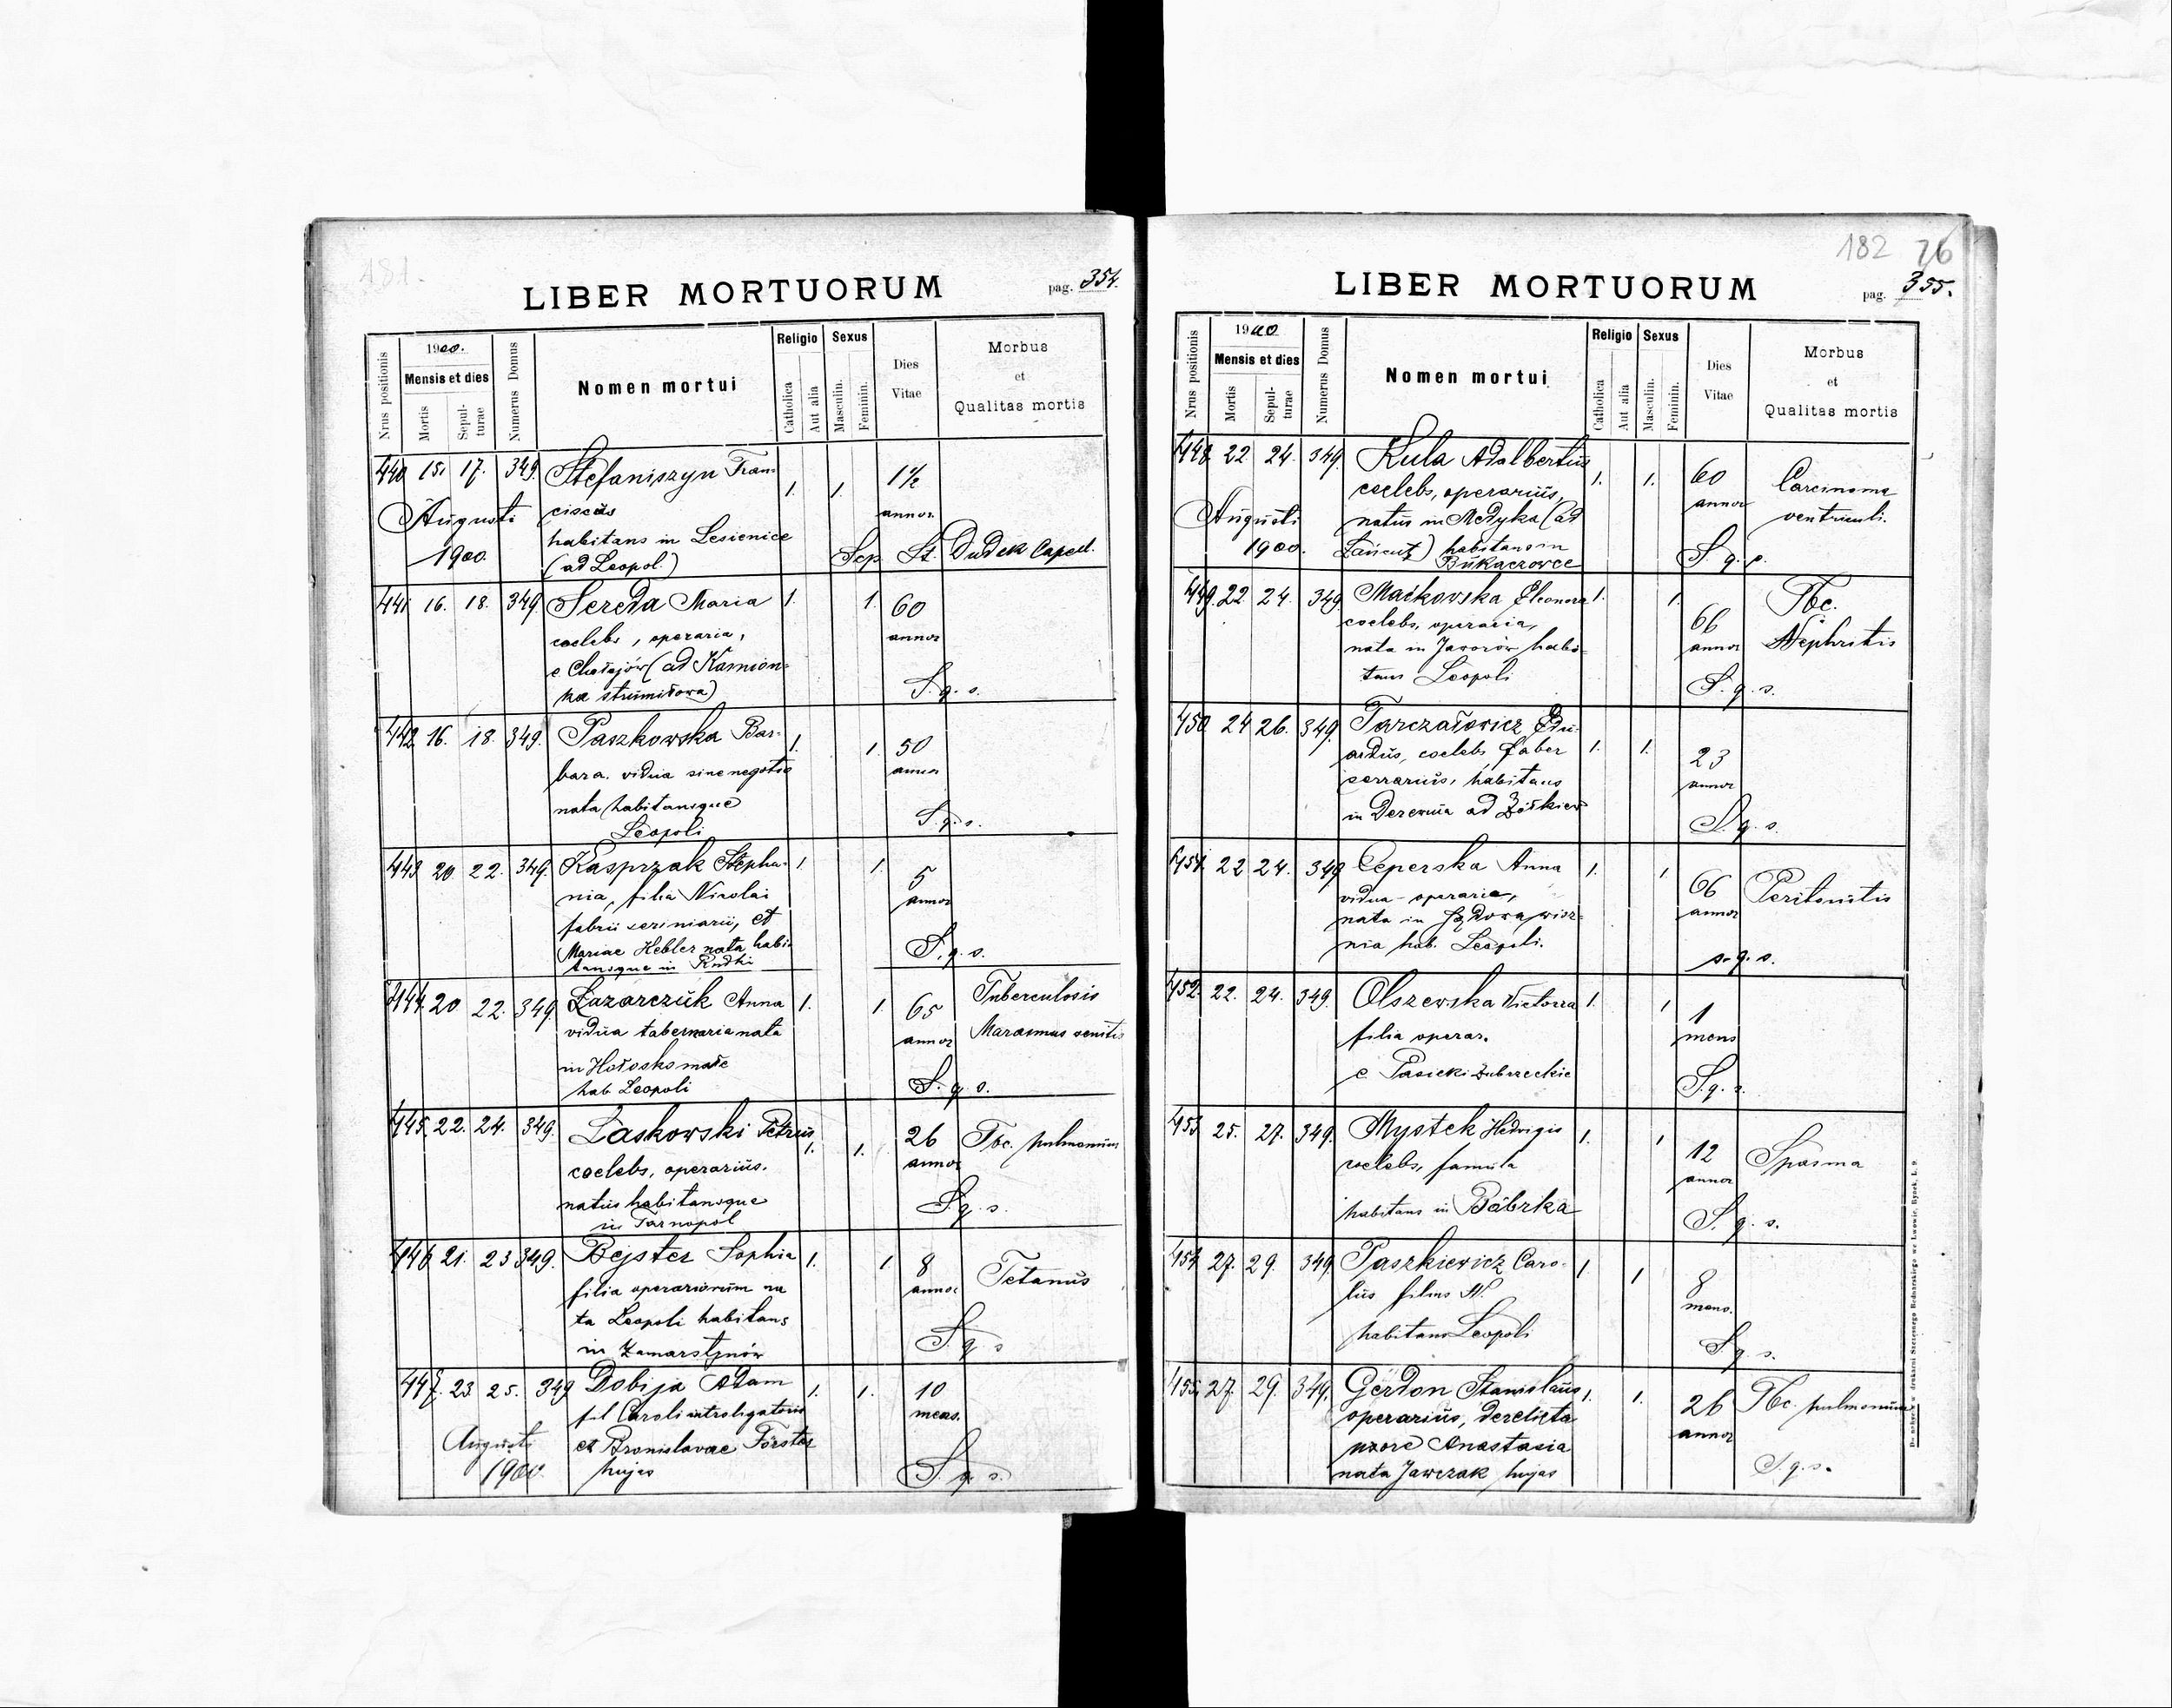 181.
LIBER MORTUORUM
pag. 354.
Nrus positionis
1900.
Mensis et dies
Mortis
Sepul-
turae
Numerus Domus
Nomen mortui
Religio
Catholica
Aut alia
Sexus
Masculin.
Feminin.
Dies
Vitae
Morbus
et
Qualitas mortis
440 15. 17. 349. Stefaniszyn Fran- 1. 1. 1½
Augusti ciscus annor.
habitans in Lesienice
1900. (ad Leopol.) Sep. St. Dudek Capell.
441 16. 18. 349. Sereda Maria 1. 1. 60
coelebs, operaria, annor
e Chołojów (ad Kamion-
ka strumiłowa) S. q. s.
442 16. 18. 349. Paszkowska Bar- 1. 1. 50
bara. vidua sine negotio annor
nata habitansque
Leopoli S. q. s.
443 20. 22. 349. Kasprzak Stepha- 1. 1. 5
nia, filia Nicolai annor
fabrii scriniarii, et
Mariae Hebler nata habi-
tansque in Rudki S. q. s.
444. 20. 22. 349. Łazarczuk Anna 1. 1. 65 Tuberculosis
vidua tabernaria nata annor Marasmus senilis
in Hołosko małe
hab. Leopoli S. q. s.
445. 22. 24. 349. Laskowski Petrus 1. 1. 26 Tbc. pulmonum
coelebs, operarius. annor
natus habitansque
in Tarnopol S. q. s.
446 21. 23 349. Bejster Sophia 1. 1. 8 Tetanus
filia operariorum na annor
ta Leopoli habitans
in Zamarstynów S. q. s
447. 23 25. 349 Dobija Adam 1. 1. 10
fil Caroli introligatoris mens.
Augusti et Bronislavae Förster
1900. hujas S. q. s.
182 76
LIBER MORTUORUM
pag. 355.
Nrus positionis
1900
Mensis et dies
Mortis
Sepul-
turae
Numerus Domus
Nomen mortui
Religio
Catholica
Aut alia
Sexus
Masculin.
Feminin.
Dies
Vitae
Morbus
et
Qualitas mortis
448 22 24. 349. Kula Adalbertus 1. 1. 60 Carcinoma
coelebs, operarius, annor ventriculi.
Augusti natus in Medyka (ad
1900. Łańcut) habitans in
Bukaczowce S. q. s.
449. 22 24. 349 Maćkowska Eleonora 1. 1. 66 Tbc.
coelebs, operaria, annor Nephritis
nata in Jaworów habi-
tans Leopoli S. q. s.
450 24 26. 349. Tarczałowicz Edu- 1. 1. 23
ardus, coelebs faber annor
serrarius, habitans
in Derewnia ad Żółkiew S. q. s.
451. 22 24. 349 Ceperska Anna 1. 1 66 Peritonitis
vidua - operaria, annor
nata in Sądowa wisz-
nia hab. Leopoli. s. q. s.
452. 22. 24. 349. Olszewska Victoria 1. 1 1
filia operar. mens
e Pasieki Zubrzeckie S. q. s.
453 25. 27. 349. Mystek Hedvigis 1. 1 12 Spasma
coelebs, famula annor
habitans in Bóbrka S. q. s.
454 27. 29. 349 Paszkiewicz Caro- 1. 1 8
lus filius N. mens.
habitans Leopoli S. q. s.
455. 27. 29. 349. Gerdon Stanislaus 1. 1. 26 Tbc. pulmonum
operarius, derelicta annor
uxore Anastasia
nata Jawczak hujas S. q. s.